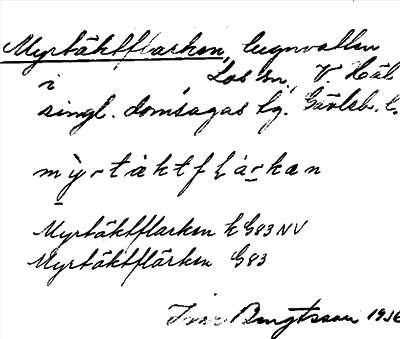 Myrtäktflarken, lugnvatten
i Los sn, V. Häl
singl. domsagas tg. Gävleb. l.
mỳrtäktflarkan
Myrtäktflarken k G83 NV
Myrtäktflärken G83
Bengtsson 1936